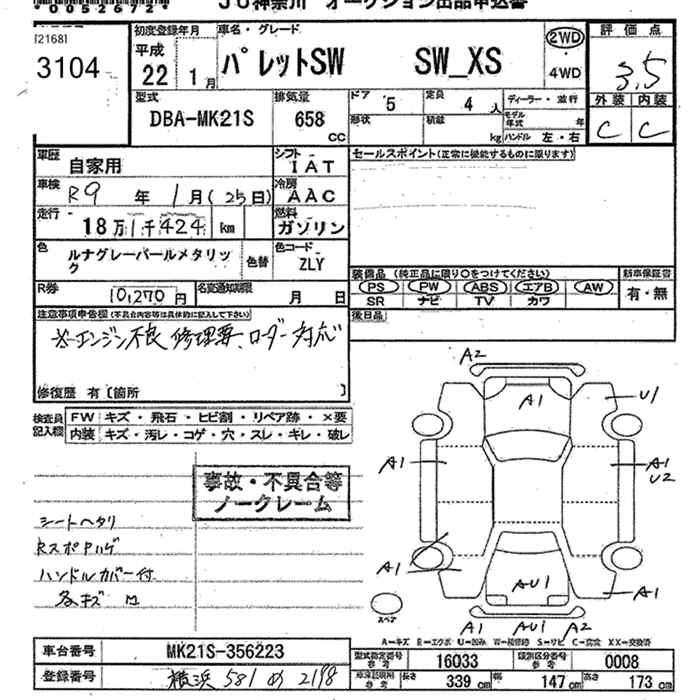 *00526727*
JU神奈川 オークション出品申込書
[2168]
3104
初度登録年月
平成
22 1月
車名・グレード
パレットSW SW_XS
2WD
・
4WD
評価点
3.5
外装 内装
C C
型式
DBA-MK21S
排気量
658
CC
ドア
5
定員
4 人
形状
積載
kg
ディーラー・並行
モデル年式 年
ハンドル 左・右
車歴
自家用
シフト
IAT
車検
R9 年 1月(25日)
冷房
AAC
走行
18万1千424 km
燃料
ガソリン
色
ルナグレーパールメタリック
色替
色コード
ZLY
セールスポイント(正常に機能するものに限ります)
装備品(純正品に限り○をつけてください)
PS PW ABS エアB AW
SR ナビ TV カワ
新車保証書
有・無
後日品
R券
10,270円
名変通知期限
月 日
注意事項申告欄(不具合内容等は具体的に記入して下さい)
※エンジン不良 修理要、ローダー対応
修復歴 有〔箇所 〕
検査員記入欄
FW キズ・飛石・ヒビ割・リペア跡・×要
内装 キズ・汚レ・コゲ・穴・スレ・キレ・破レ
事故・不具合等
ノークレーム
シートヘタリ
RスポPハゲ
ハンドルカバー付
各キズ凹
A2
A1
U1
A1
A1
U2
A1
AU1
A1
スペア
A1 AU1 A2
A=キズ E=エクボ U=凹み W=補修跡 S=サビ C=腐食 XX=交換済
車台番号
MK21S-356223
登録番号
横浜 581 め 2198
型式指定番号
参考
16033
類別区分番号
参考
0008
車検証明
参考
長さ
339 cm
幅
147 cm
高さ
173 cm